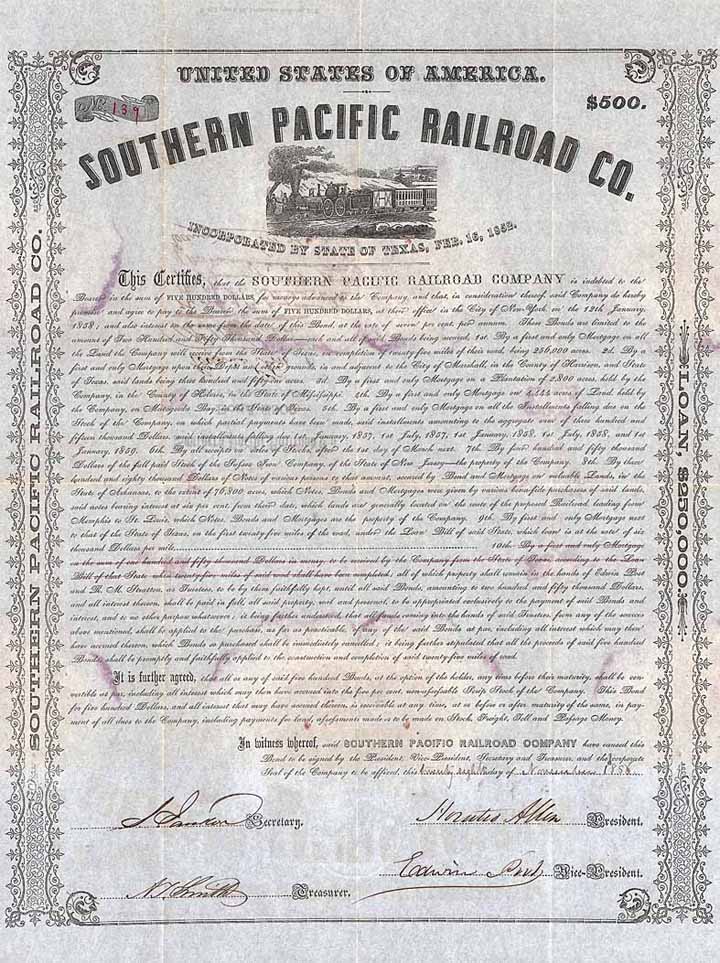 UNITED STATES OF AMERICA.
No. 139
$500.
SOUTHERN PACIFIC RAILROAD CO.
INCORPORATED BY STATE OF TEXAS, FEB. 16, 1852.
This Certifies, that the SOUTHERN PACIFIC RAILROAD COMPANY is indebted to the
Bearer in the sum of FIVE HUNDRED DOLLARS, for moneys advanced to the Company, and that, in consideration thereof, said Company do hereby
promise and agree to pay to the Bearer the sum of FIVE HUNDRED DOLLARS, at their office in the City of New-York on the 12th January,
1858; and also interest on the same from the date of this Bond, at the rate of seven per cent. per annum. These Bonds are limited to the
amount of Two Hundred and Fifty Thousand Dollars—each and all of said Bonds being secured, 1st. By a first and only Mortgage on all
the Land the Company will receive from the State of Texas, on completion of twenty five miles of their road, being 256,000 acres. 2d. By a
first and only Mortgage upon their Depot and grounds, in and adjacent to the City of Marshall, in the County of Harrison, and State
of Texas, said lands being three hundred and fifty six acres. 3d. By a first and only Mortgage on a Plantation of 2800 acres, held by the
Company, in the County of Holmes, in the State of Mississippi. 4th. By a first and only Mortgage on acres of Land, held by
the Company, on Matagorda Bay, in the State of Texas. 5th. By a first and only Mortgage on all the Installments falling due on the
Stock of the Company, on which partial payments have been made, said installments amounting to the aggregate over of three hundred and
fifteen thousand Dollars, and installments falling due 1st January, 1857, 1st July, 1857, 1st January, 1858, 1st July, 1858, and 1st
January, 1859. 6th. By all receipts on sales of Stocks, after the 1st day of March next. 7th. By four hundred and fifty thousand
Dollars of the full paid Stock of the Company of the State of New Jersey—the property of the Company. 8th. By three
hundred and eighty thousand Dollars of Notes of various persons to that amount, secured by Bond and Mortgage on valuable Lands, in the
State of Arkansas, to the extent of 76,800 acres, which Notes, Bonds and Mortgages were given by various bonafide purchasers of said lands,
said notes bearing interest at six per cent. from their date, which lands are generally located on the route of the proposed Railroad leading from
Memphis to St. Louis, which Notes, Bonds and Mortgages are the property of the Company. 9th. By first and only Mortgage next
to that of the State of Texas, on the first twenty five miles of the road, under the Loan Bill of said State, which loan is at the rate of six
thousand Dollars per mile. 10th. By a first and only Mortgage
on the sum of one hundred and fifty thousand Dollars in money, to be received by the Company from the State of Texas, according to the Loan
Bill of that State when twenty five miles of said road shall have been completed; all of which property shall remain in the hands of Edwin Post
and R. M. Stratton, as Trustees, to be by them faithfully kept, until all said Bonds, amounting to two hundred and fifty thousand Dollars,
and all interest thereon, shall be paid in full, all said property, real and personal, to be appropriated exclusively to the payment of said Bonds and
interest, and to no other purpose whatsoever; it being further understood, that all funds coming into the hands of said Trustees, from any of the sources
above mentioned, shall be applied to the purchase, as far as practicable, of any of the said Bonds at par, including all interest which may then
have accrued thereon, which Bonds so purchased shall be immediately cancelled; it being further stipulated that all the proceeds of said five hundred
Bonds shall be promptly and faithfully applied to the construction and completion of said twenty five miles of road.
It is further agreed, that all or any of said five hundred Bonds, at the option of the holder, any time before their maturity, shall be con-
vertible at par, including all interest which may then have accrued into the five per cent. non-assessable Scrip Stock of the Company. This Bond
for five hundred Dollars, and all interest that may have accrued thereon, is receivable at any time, at or before or after maturity of the same, in pay-
ment of all dues to the Company, including payments for land, assessments made or to be made on Stock, Freight, Toll and Passage Money.
In witness whereof, said SOUTHERN PACIFIC RAILROAD COMPANY have caused this
Bond to be signed by the President, Vice-President, Secretary and Treasurer, and the corporate
Seal of the Company to be affixed, this twenty eighth day of November 1856
Secretary.
Horatio Allen President.
Edwin Post Vice-President.
Treasurer.
SOUTHERN PACIFIC RAILROAD CO.
LOAN, $250,000.